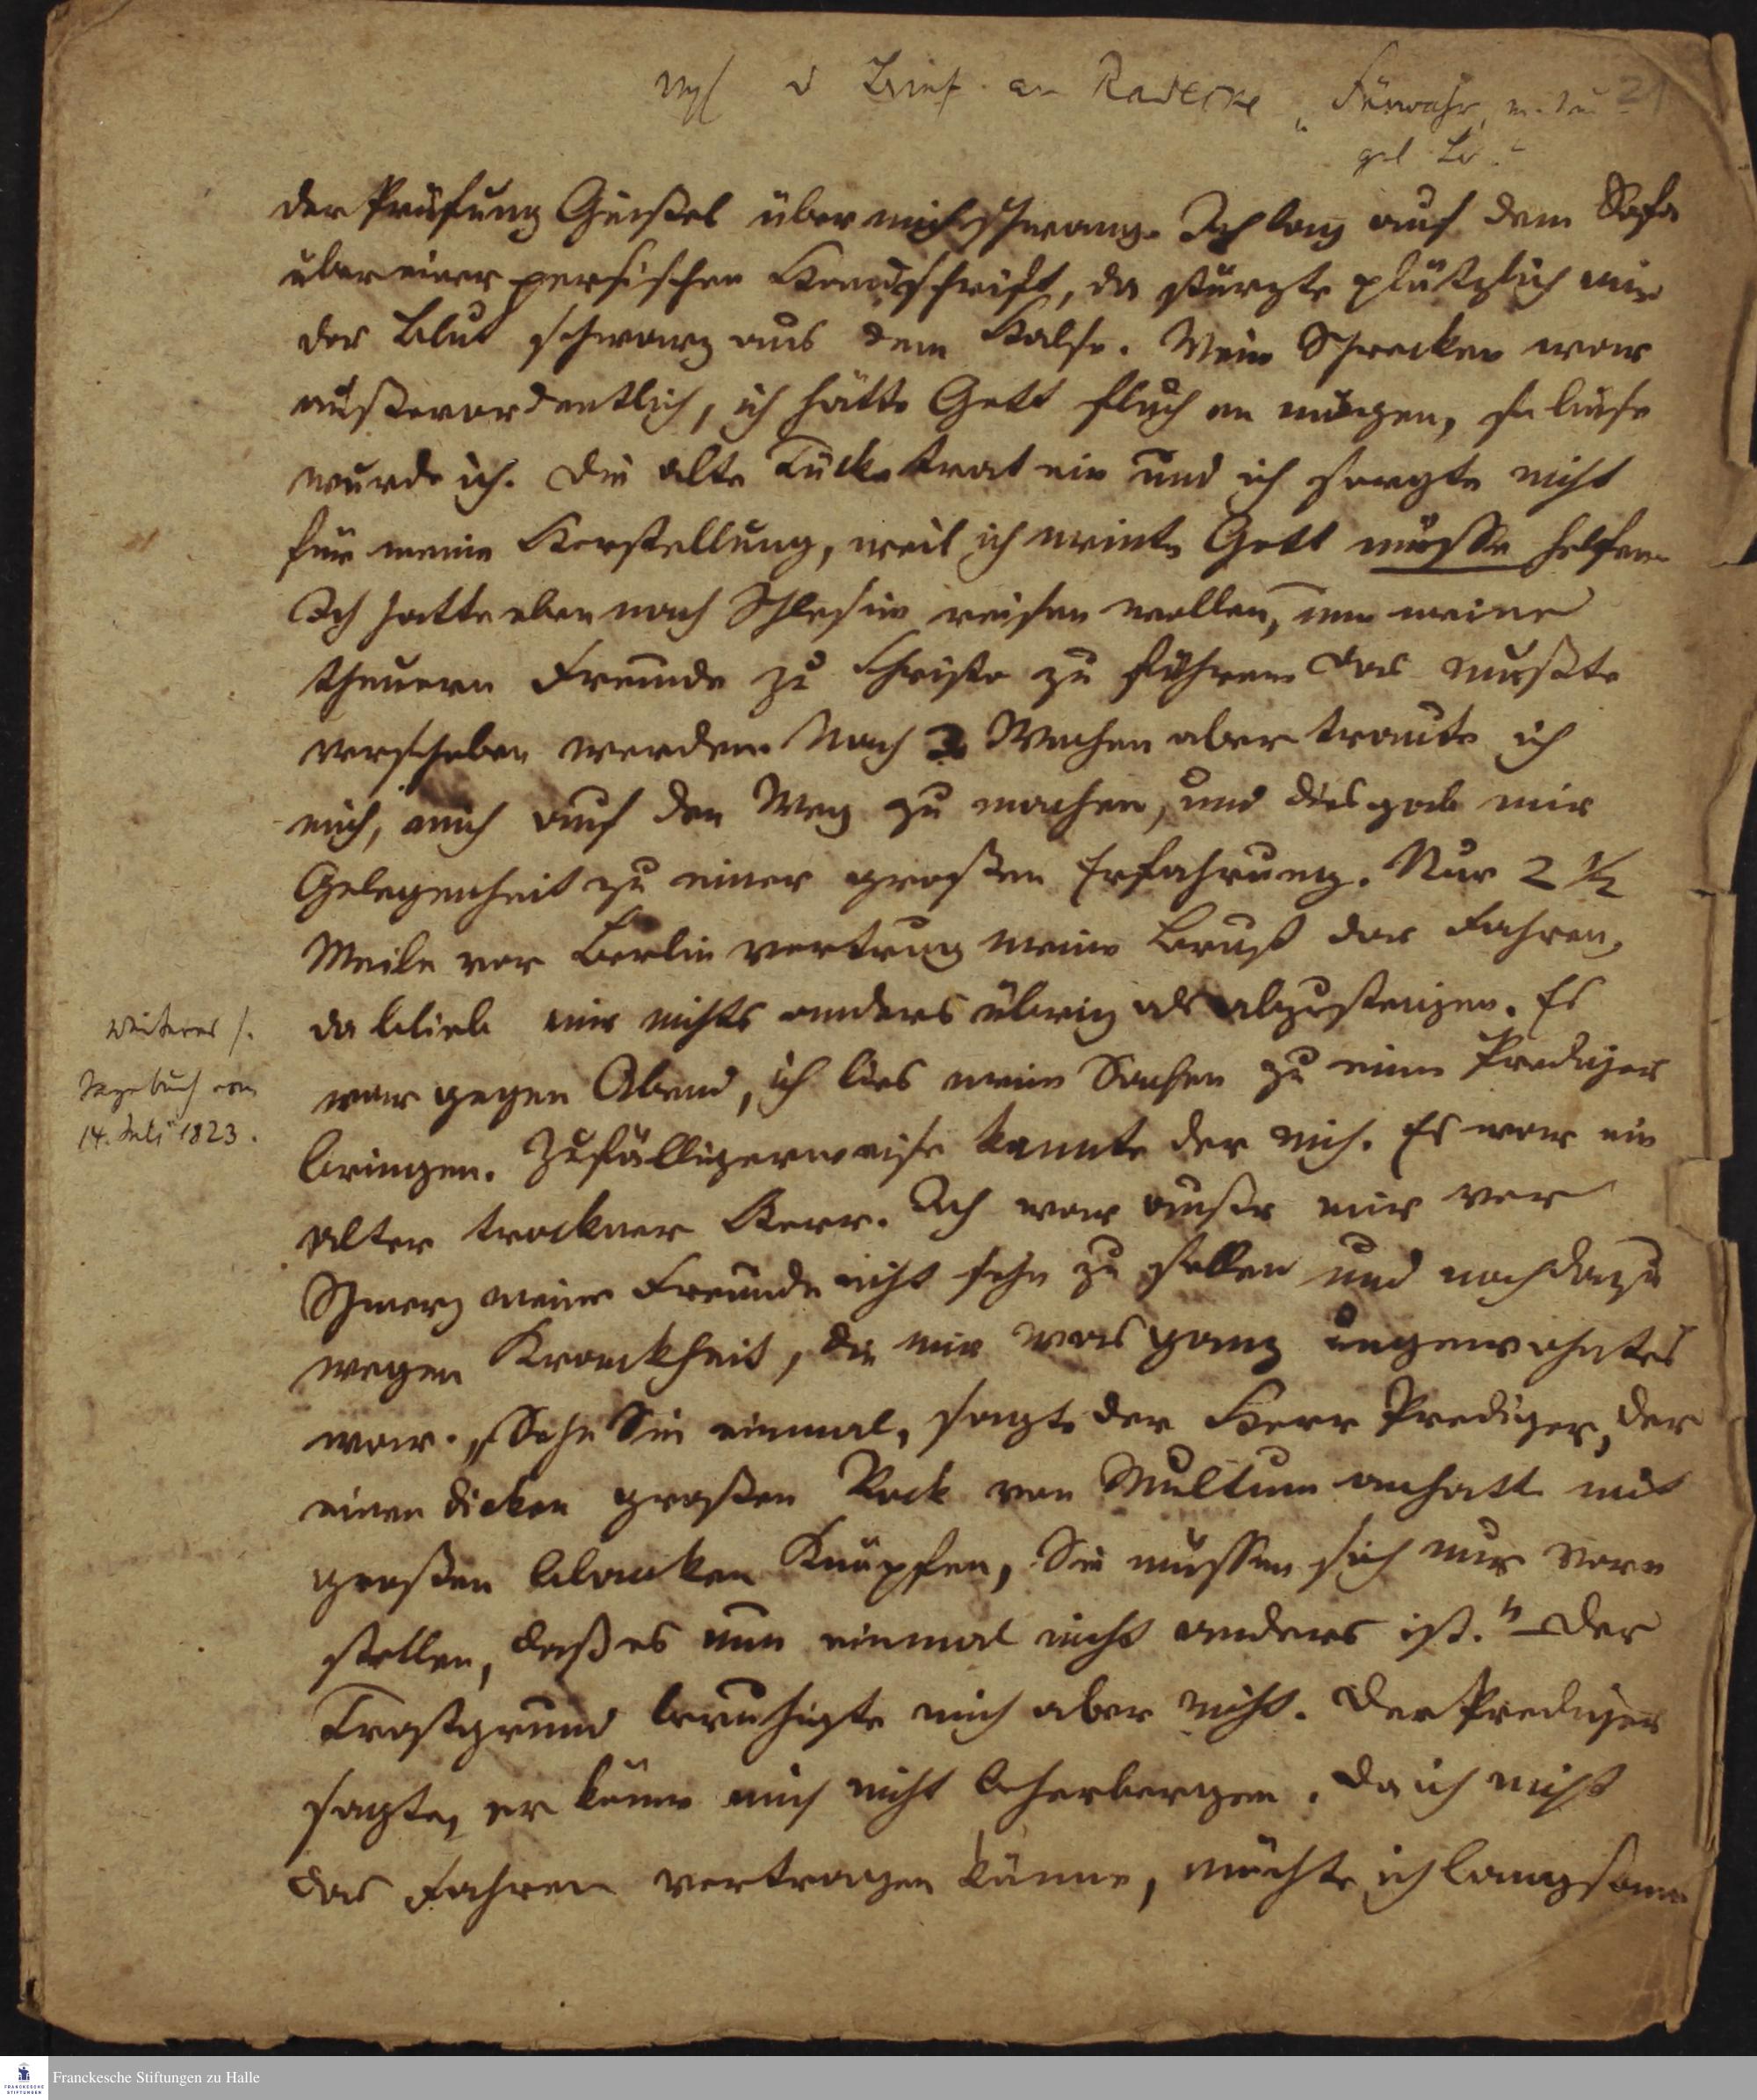 Vgl d Brief an Radecke „Fürwahr, m. teu
gel. Br."
der Prüfung Geißel über mich schwang. Ich lag auf dem Sofa
über einer persischen Handschrift, da stürzte plützlich mir
der Blut schwarz aus dem Halse. Mein Schrecken war
außerordentlich, ich hätte Gott fluchen mögen, so
wurde ich. Die alte Tücke trat ein und ich sorgte nicht
für meine Herstellung, weil ich meinte Gott müsse helfen.
Ich hatte eben nach Schlesien reisen wollen, um meine
theuern Freunde zu Christo zu führen. Das mußte
verschoben werden. Nach 3 Wochen aber traute ich
mich, mich auf den Weg zu machen, und dies gab mir
Gelegenheit zu einer großen Erfahrung. Nur 2 1/2
Meile vor Berlin vertrug meine Brust das Fahren,
da blieb mir nichts anders übrig als abzusteigen. Es
war gegen Abend, ich lies meine Sachen zu einem Prediger
bringen. Zufälligerweise kannte der mich. Es war ein
alter trockner Herr. Ich war außer mir vor
Schmerz meine Freunde nicht sehn zu sollen und noch dazu
wegen Kranckheit, die mir was ganz ungewohntes
war. „Sehn Sie einmal, sagte der Herr Prediger, der
einen dicken großen Rock von Multum anhatte mit
großen blancken Knöpfen, Sie müssen sich nur vorn
stellen, daß es nun einmal nicht anders ist." Der
Trostgrund beruhigte mich aber nicht. Der Prediger
sagte, er könne mich nicht beherbergen. Da ich nicht
das Fahren vertragen könne, möchte ich langsam
Weiteres s.
Tagebuch vom
14. Juli 1823.
Franckesche Stiftungen zu Halle
FRANCKESCHE
STIFTUNGEN